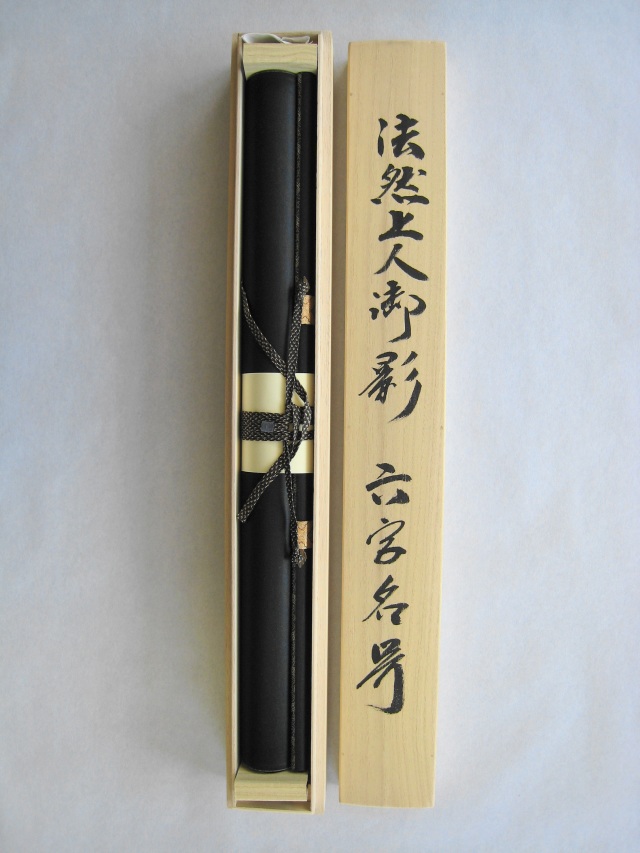 法然上人御影 六字名号